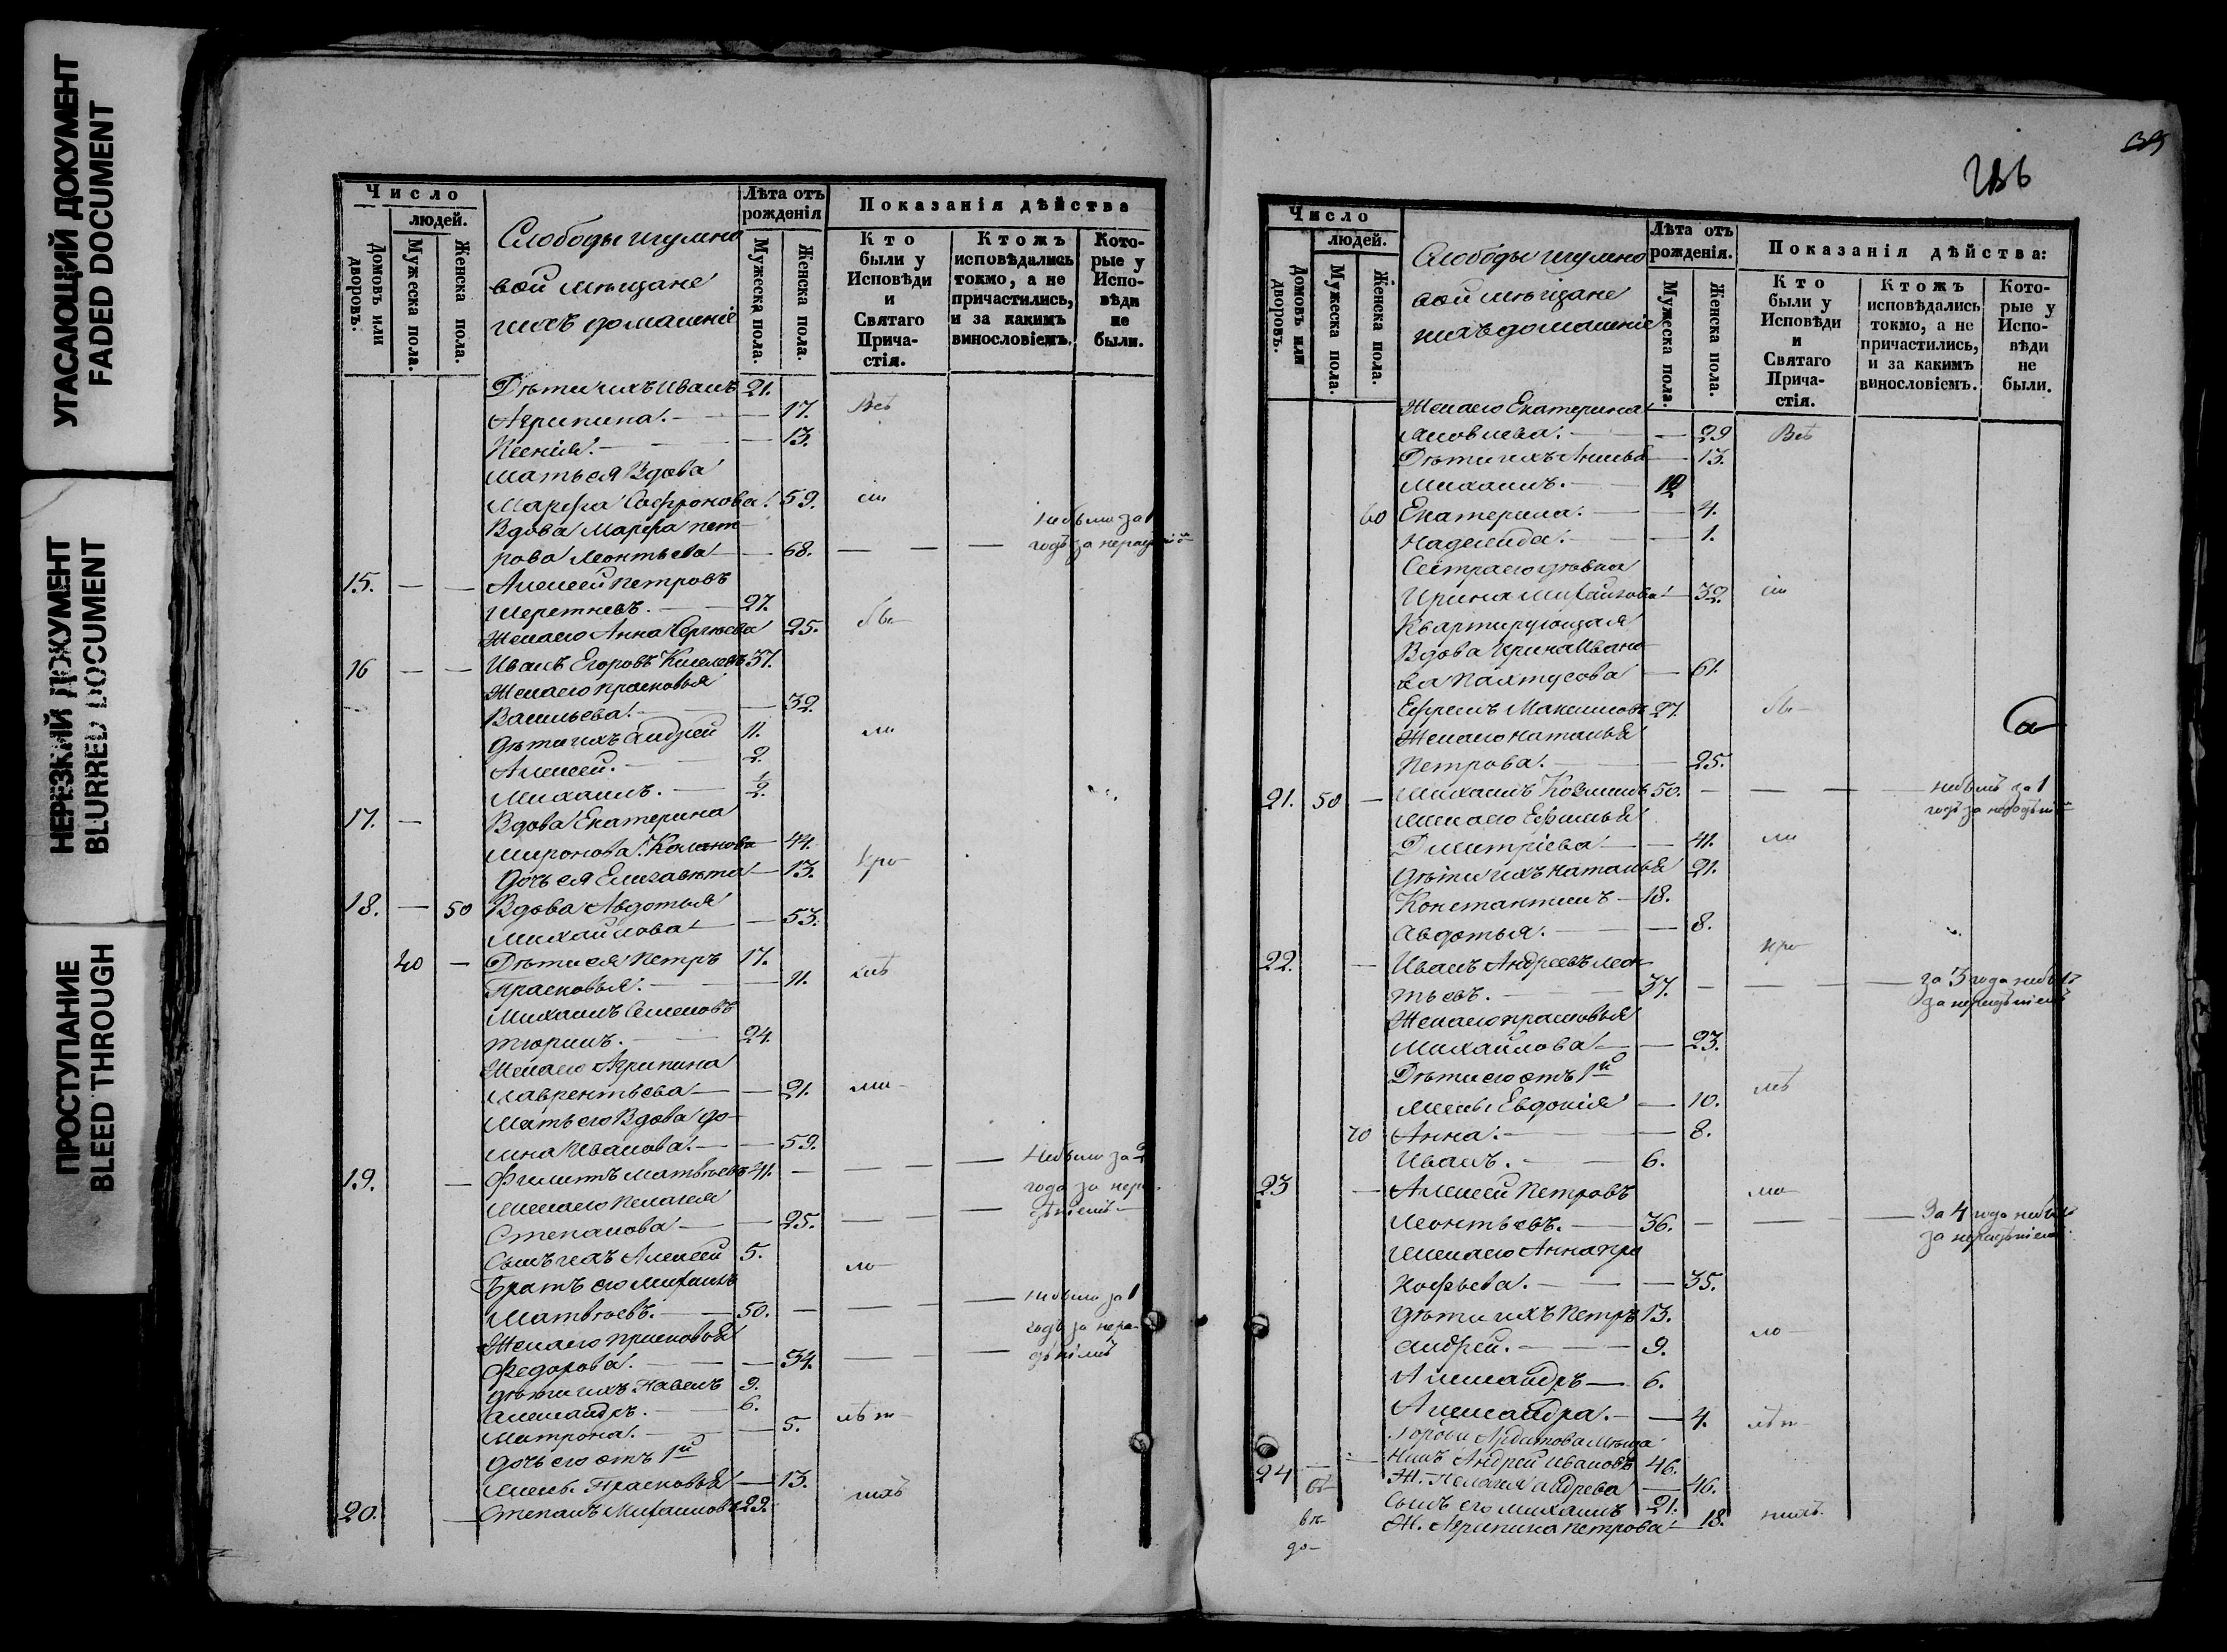 УГАСАЮЩИЙ ДОКУМЕНТ
FADED DOCUMENT
НЕРЕЗКИЙ ДОКУМЕНТ
BLURRED DOCUMENT
ПРОСТУПАНИЕ
BLEED THROUGH
Число
людей.
Домовъ или дворовъ.
Мужеска пола.
Женска пола.
Слободы
вой мѣщане
ихъ домашніе
Лѣта отъ рожденія
Мужеска пола.
Женска пола.
Показанія дѣйства
Кто были у Исповѣди и Святаго Причастія.
Ктожъ исповѣдались токмо, а не причастились, и за какимъ винословіемъ.
Которые у Исповѣди не были.
Дѣти ихъ Иванъ 21.
Агрипина. — 17. Всѣ
Ксенія. — 13.
Мать ея Вдова
Марфа Софронова. 59.
Вдова Марфа Пет-
рова Леонтьева — 68. — — — Небыла за 1
годъ за
15. — — Алексей Петровъ
Шеретневъ. — 27.
Жена его Анна Сергеева 25.
16 — — Иванъ Егоровъ Киселевъ 37.
Жена его Прасковья
Васильева. — 32.
Дѣти ихъ Андрей 11.
Алексей. — 2.
Михаилъ. — ½.
17. — Вдова Екатерина
Миронова — 44.
Дочь ея Елизавета — 13.
18. — 50 Вдова Авдотья
Михайлова — 53.
40 — Дѣти ея Петръ 17.
Прасковья. — 11.
Михаилъ Семеновъ
Тюринъ. — 24.
Жена его Агрипина
Лаврентьева — 21.
Мать его Вдова До-
мна Иванова. — 59.
19. — Филипъ Матвѣевъ 41. — — — Небыли за 2
года за нера-
Жена его Пелагея
Степанова — 25. — — дѣніемъ
Сынъ ихъ Алексей 5.
Братъ его Михаилъ
Матвѣевъ. — 50. — — — Небыли за 1
годъ за нера-
Жена его Прасковья
Федорова. — 34. — — дѣніемъ
Дѣти ихъ Павелъ 9.
Александръ. — 6.
Матрона. — 5.
Дочь его отъ 1й
жены Прасковья — 13.
20. — Степанъ Михаиловъ 29.
39
Число
людей.
Домовъ или дворовъ.
Мужеска пола.
Женска пола.
Слободы
вой мѣщане
ихъ домашніе
Лѣта отъ рожденія.
Мужеска пола.
Женска пола.
Показанія дѣйства:
Кто были у Исповѣди и Святаго Причастія.
Ктожъ исповѣдались токмо, а не причастились, и за какимъ винословіемъ.
Которые у Исповѣди не были.
Жена его Екатерина
Яковлева. — 29 Всѣ
Дѣти ихъ — 13.
Михаилъ. —
60 Екатерина. — 4.
Надежда. — 1.
Сестра его дѣвка
Ирина Михайлова. — 32.
Квартирующая
Вдова Ирина Ивано-
ва Пахтусова — 61.
Ефремъ Максимовъ 27.
Жена его Наталья
Петрова. — 25.
21. 50 — Михаилъ Козминъ 50. — — — небылъ за 1
годъ за нерадѣніе
Жена его Ефимья
Дмитріева — 41.
Дѣти ихъ Наталья 21.
Константинъ — 18.
Авдотья. — 8.
22. — Иванъ Андреевъ Леон-
тьевъ. — 37. — — — за 3 года небылъ
за нерадѣніемъ
Жена его Прасковья
Михайлова — 23.
Дѣти его отъ 1й
жены Евдокія — 10.
70 Анна. — 8.
Иванъ. — 6.
23 — Алексей Петровъ
Леонтьевъ. — 36. — — — За 4 года небылъ
за нерадѣніемъ.
Жена его Анна Про-
кофьева. — 35.
Дѣти ихъ Петръ 13.
Андрей. — 9.
Александръ — 6.
Александра. — 4.
Города Ардатова мѣща-
нинъ Андрей Ивановъ 46.
24 Ж. Пелагея Андрева — 46.
Сынъ его Михаилъ 21.
Ж. Агрипина Петрова — 18.